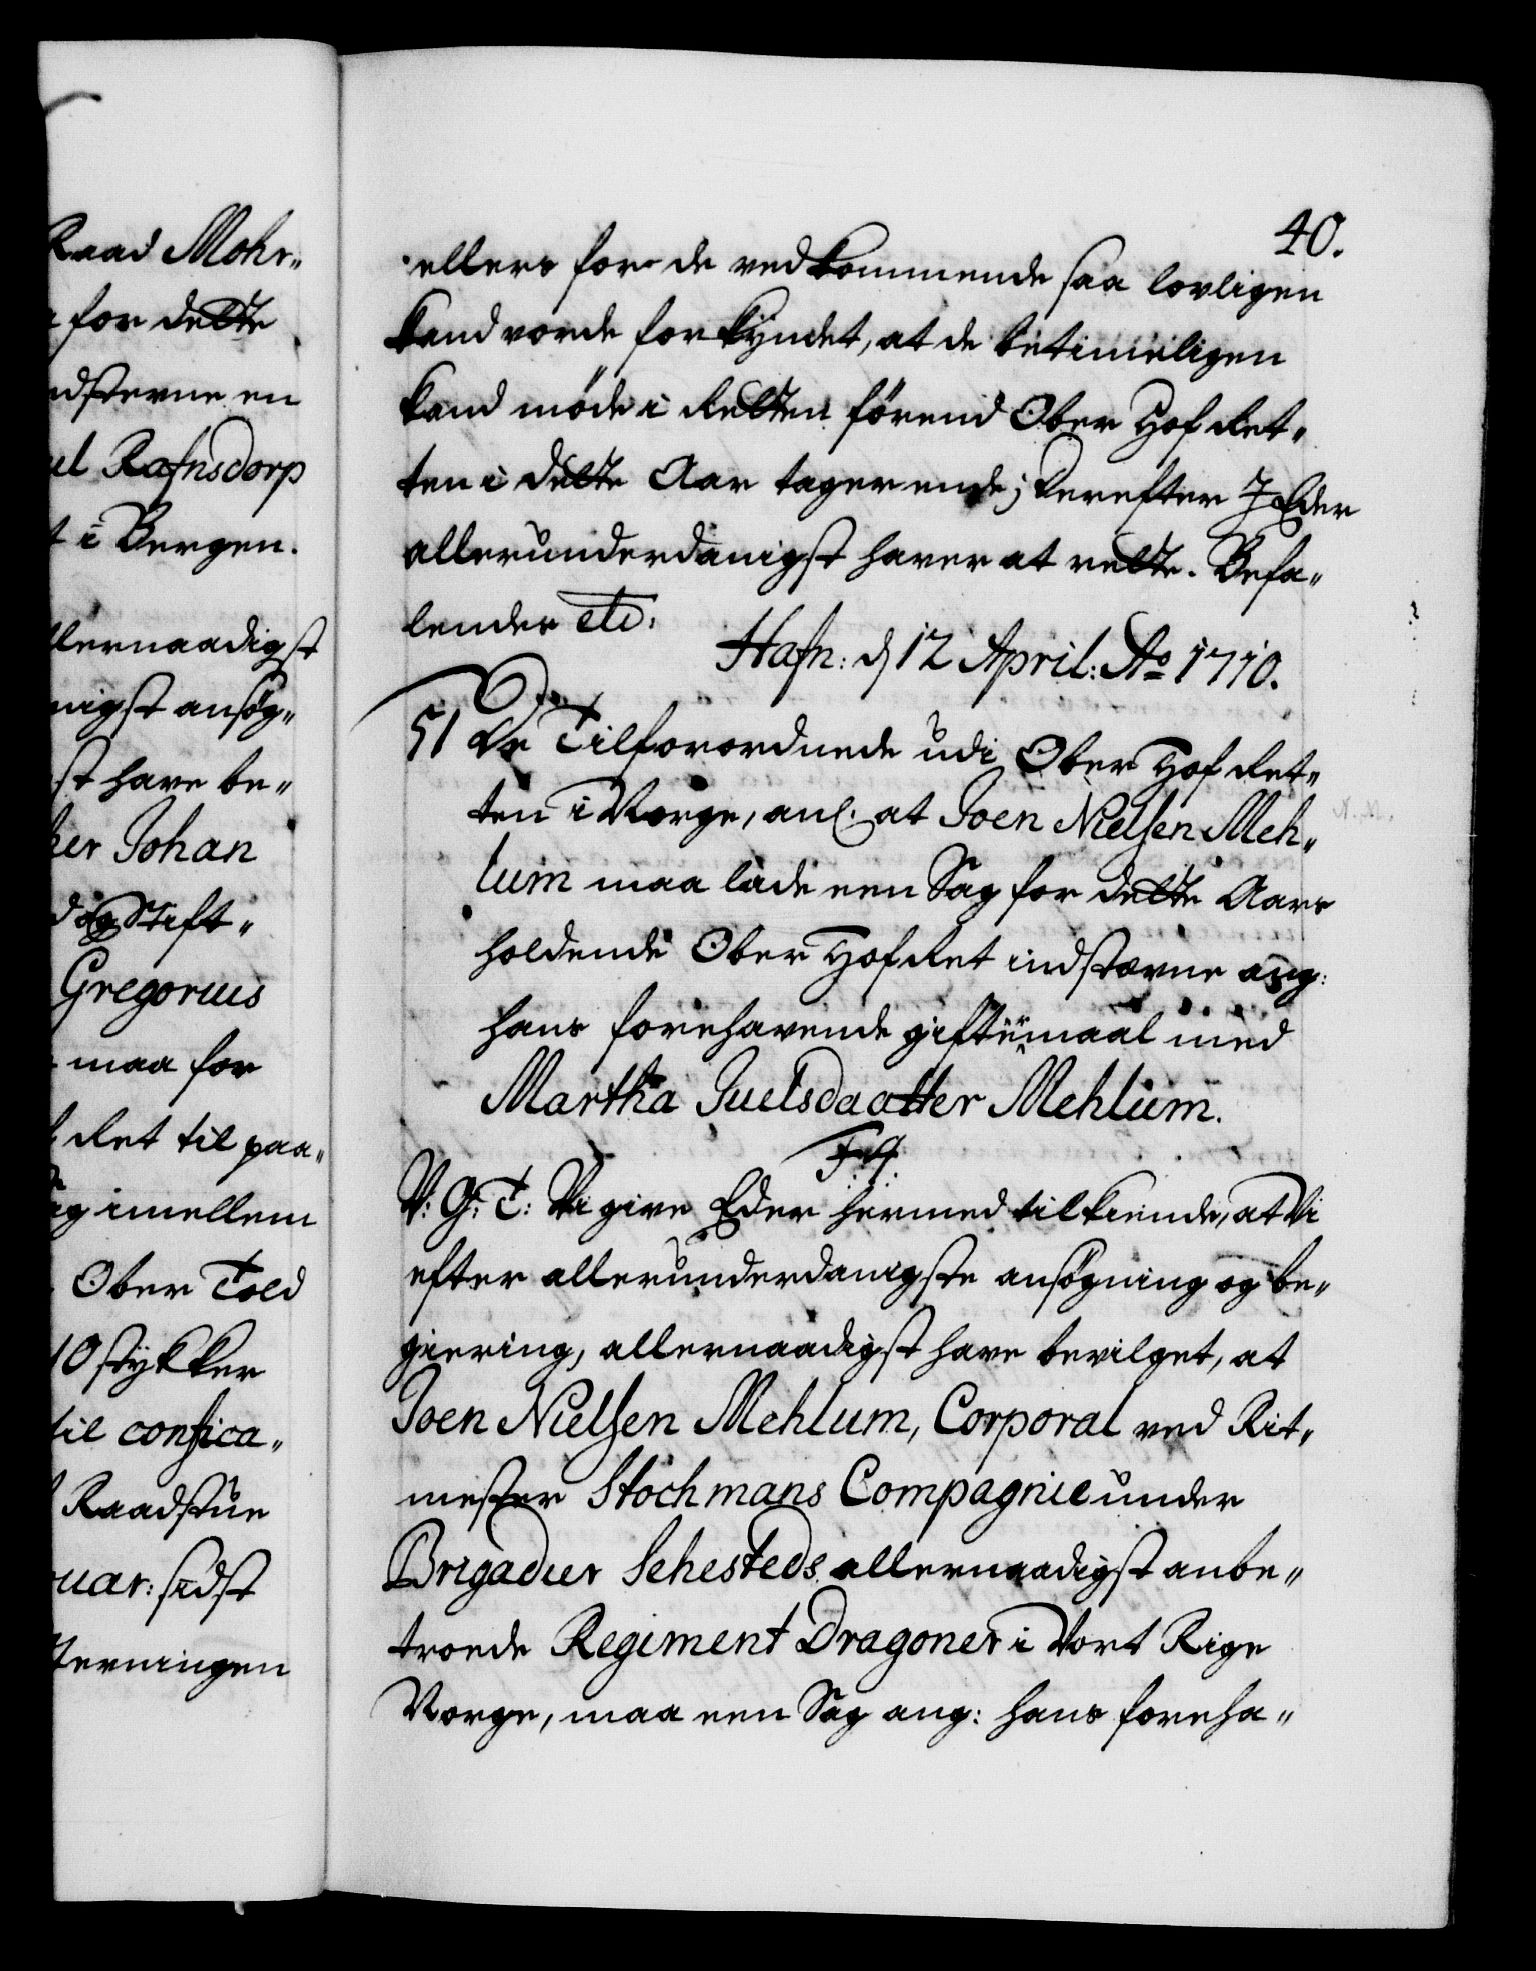 Raad Mohr„
for dette
dsterne en
el Rafnsdorp
t i Bergen.
llernaadigst
nigst ansøg„
st have be„
ker Johan
d og Stift„
Gregorius
maa for
Ret til paa„
ag imellem
Ober Told
10 stykker
til confica„
Raadstue
uar: sidst
terningen
40.
ellers for de vedkommende saa lovligen
kand vorde forkyndet, at de betimeligen
kand møde i Retten førend Ober Hof Ret„
ten i dette Aar tager ende; Derefter I Eder
allerunderdanigst haver at rette. Befa„
lendes etc.
Hafn: d 12 April: Ao 1710.
51 De Tilforordnede udi Ober Hof Ret„
ten i Norge, anl. at Joen Nielsen Meh„
lum maa lade een Sag for dette Aars
holdende Ober Hof Ret indstævne ang:
hans forehavende giftermaal med
Martha Juelsdaatter Mehlum.
F 4
V: G: T: Vi give Eder hermed tilkiende, at Vi
efter allerunderdanigste ansøgning og be„
giering, allernaadigst have bevilget, at
Joen Nielsen Mehlum, Corporal ved Rit„
mester Stochmans Compagnie under
Brigadier Sehesteds allernaadigst anbe„
troede Regiment Dragoner i Vort Rige
Norge, maa een Sag ang: hans foreha„